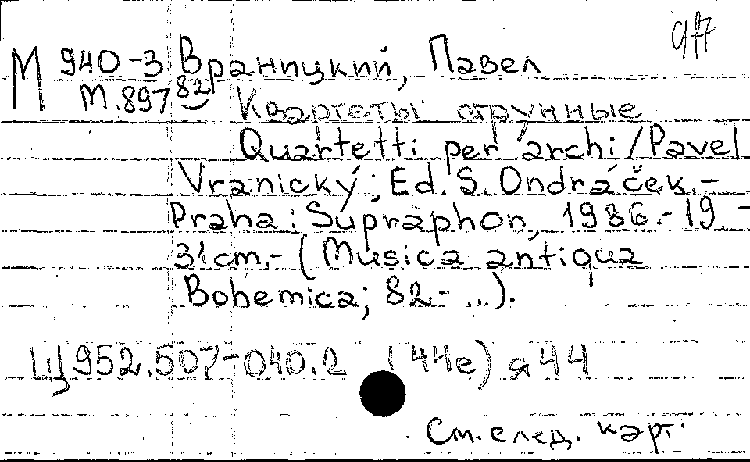 М 940-3 Враницкий, Павел
М.897 82 Квартеты струнные
Quartetti per archi / Pavel
Vranický; Ed. S. Ondráček. -
Praha: Supraphon, 1986. - 19 -
31cm. - (Musica antiqua
Bohemica; 82- ...).
Щ952.507-040.2 (44е) я44
См. след. карт.